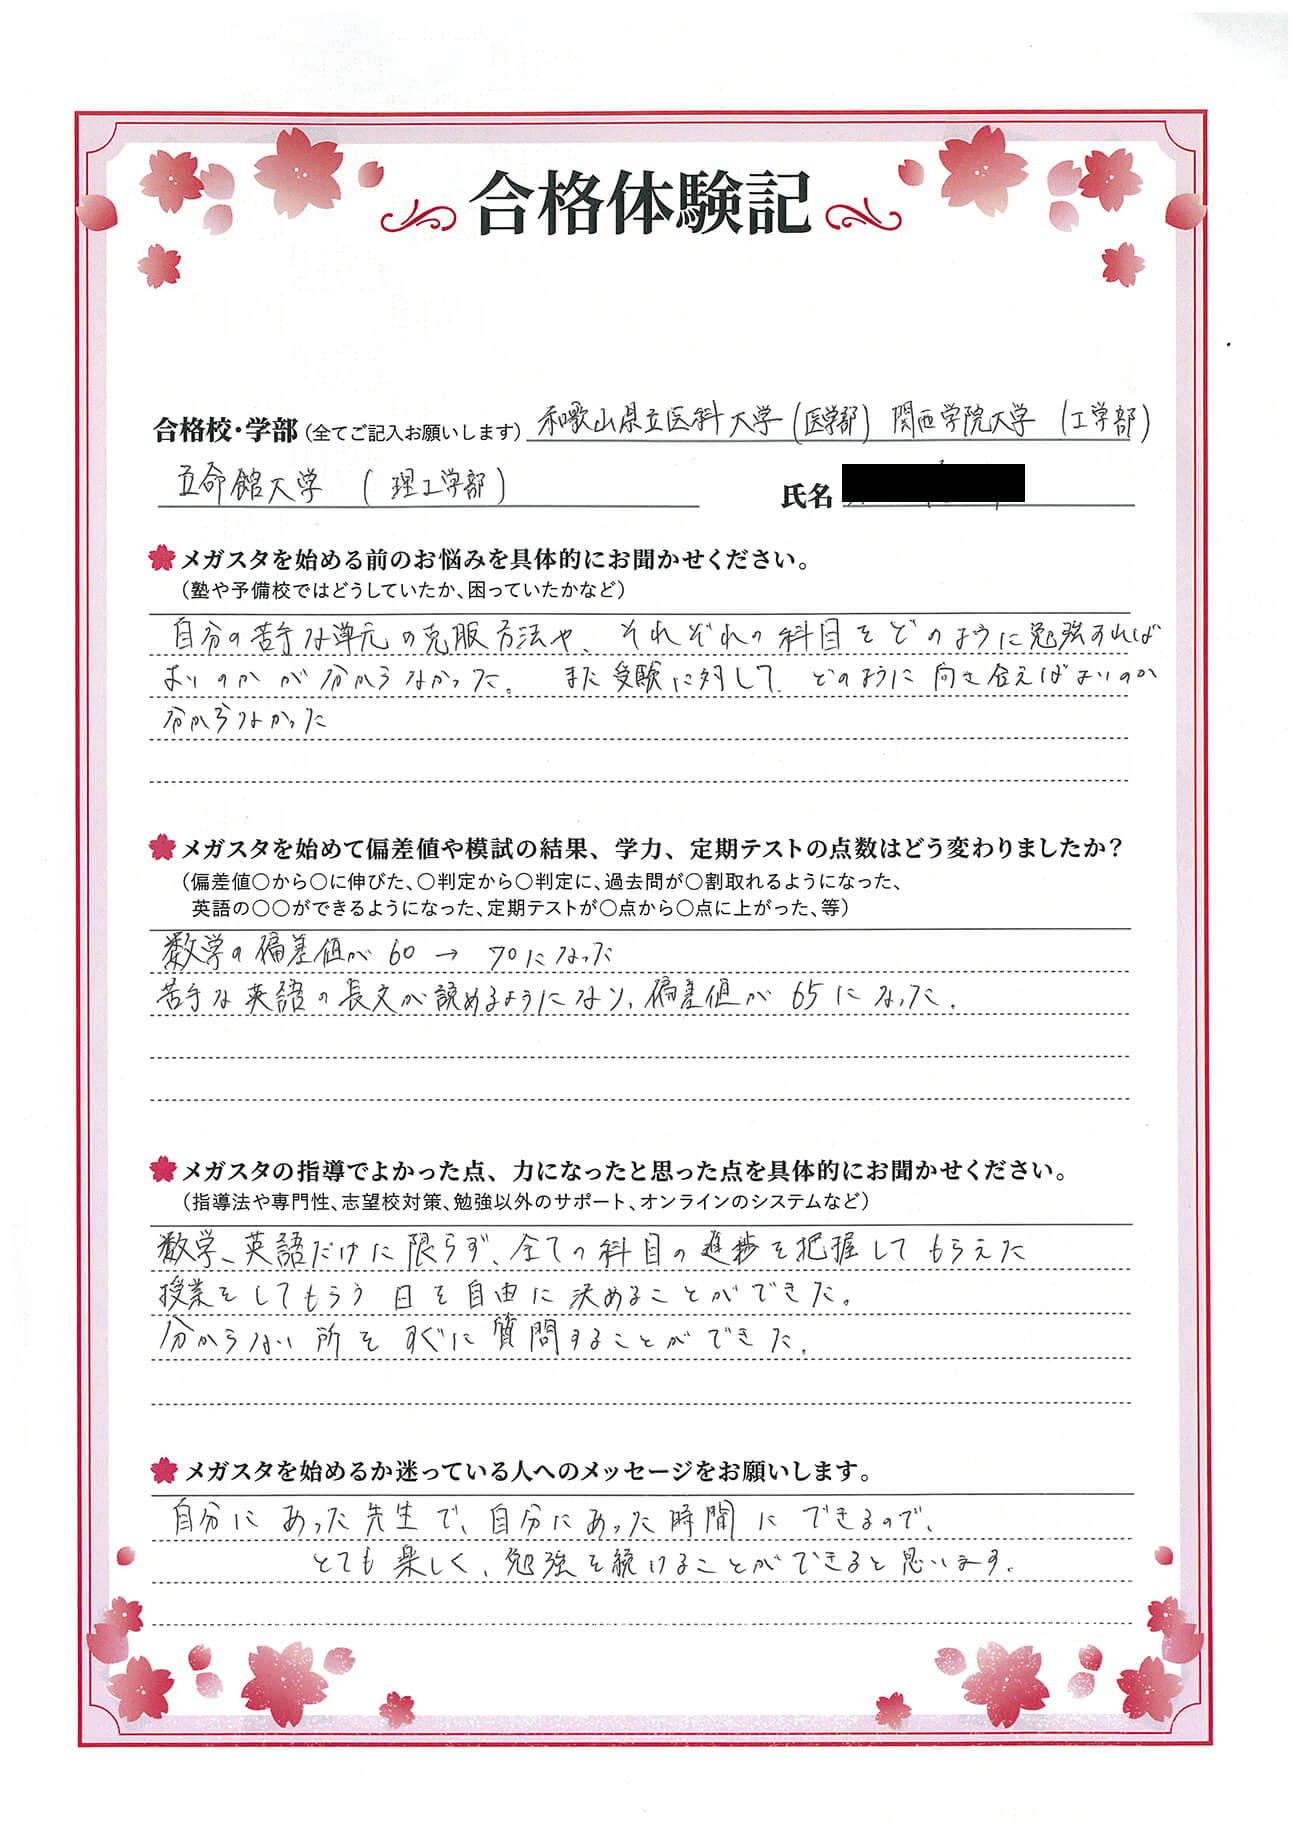 合格体験記
合格校・学部（全てご記入お願いします） 和歌山県立医科大学（医学部） 関西学院大学 （工学部）
立命館大学 （理工学部） 氏名
メガスタを始める前のお悩みを具体的にお聞かせください。
（塾や予備校ではどうしていたか、困っていたかなど）
自分の苦手な単元の克服方法や、それぞれの科目をどのように勉強すれば
よいのかが分からなかった。 また受験に対して、どのように向き合えばよいのか
分からなかった
メガスタを始めて偏差値や模試の結果、学力、定期テストの点数はどう変わりましたか？
（偏差値〇から〇に伸びた、〇判定から〇判定に、過去問が〇割取れるようになった、
英語の〇〇ができるようになった、定期テストが〇点から〇点に上がった、等）
数学の偏差値が 60 → 70になった
苦手な英語の長文が読めるようになり、偏差値が 65になった。
メガスタの指導でよかった点、力になったと思った点を具体的にお聞かせください。
（指導法や専門性、志望校対策、勉強以外のサポート、オンラインのシステムなど）
数学、英語だけに限らず、全ての科目の進捗を把握してもらえた
授業をしてもらう日を自由に決めることができた。
分からない所をすぐに質問することができた。
メガスタを始めるか迷っている人へのメッセージをお願いします。
自分にあった先生で、自分にあった時間にできるので、
とても楽しく、勉強を続けることができると思います。